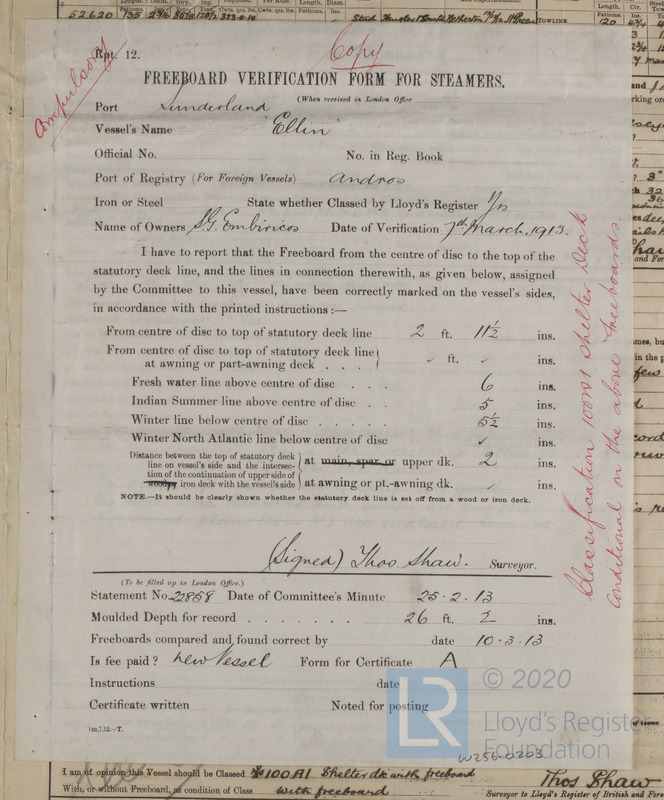 52620 135
TOWLINE
Copy
Rpt. 12.
Compulsory
FREEBOARD VERIFICATION FORM FOR STEAMERS.
(When received in London Office
Port Sunderland
Vessel's Name "Ellin"
Official No. No. in Reg. Book
Port of Registry (For Foreign Vessels) Andros
Iron or Steel State whether Classed by Lloyd's Register Yes
Name of Owners S.G. Embiricos Date of Verification 7th March, 1913.
I have to report that the Freeboard from the centre of disc to the top of the
statutory deck line, and the lines in connection therewith, as given below, assigned
by the Committee to this vessel, have been correctly marked on the vessel's sides,
in accordance with the printed instructions :—
From centre of disc to top of statutory deck line 2 ft. 11½ ins.
From centre of disc to top of statutory deck line
at awning or part-awning deck . . . ✓ ft. ✓ ins.
Fresh water line above centre of disc . . 6 ins.
Indian Summer line above centre of disc . . 5 ins.
Winter line below centre of disc . . . . . 5½ ins.
Winter North Atlantic line below centre of disc ✓ ins.
Distance between the top of statutory deck
line on vessel's side and the intersec-
tion of the continuation of upper side of
woodpy iron deck with the vessel's side
at main, spar or upper dk. 2 ins.
at awning or pt.-awning dk. ✓ ins.
NOTE.—It should be clearly shown whether the statutory deck line is set off from a wood or iron deck.
(Signed) Thos Shaw. Surveyor.
(To be filled up in London Office.)
Statement No. 22858 Date of Committee's Minute 25.2.13
Moulded Depth for record . . . . . . . 26 ft. 2 ins.
Freeboards compared and found correct by date 10.3.13
Is fee paid? New Vessel Form for Certificate A
Instructions date
Certificate written Noted for posting
1m,7,12.—T.
Classification 100A1 Shelter Deck
conditional on the above freeboards
LR
© 2020
Lloyd's Register
Foundation
W256-0203
I am of opinion this Vessel should be Classed 100A1 Shelter dk with freeboard
With, or without Freeboard, as condition of Class with freeboard
Thos Shaw
Surveyor to Lloyd's Register of British and Fore